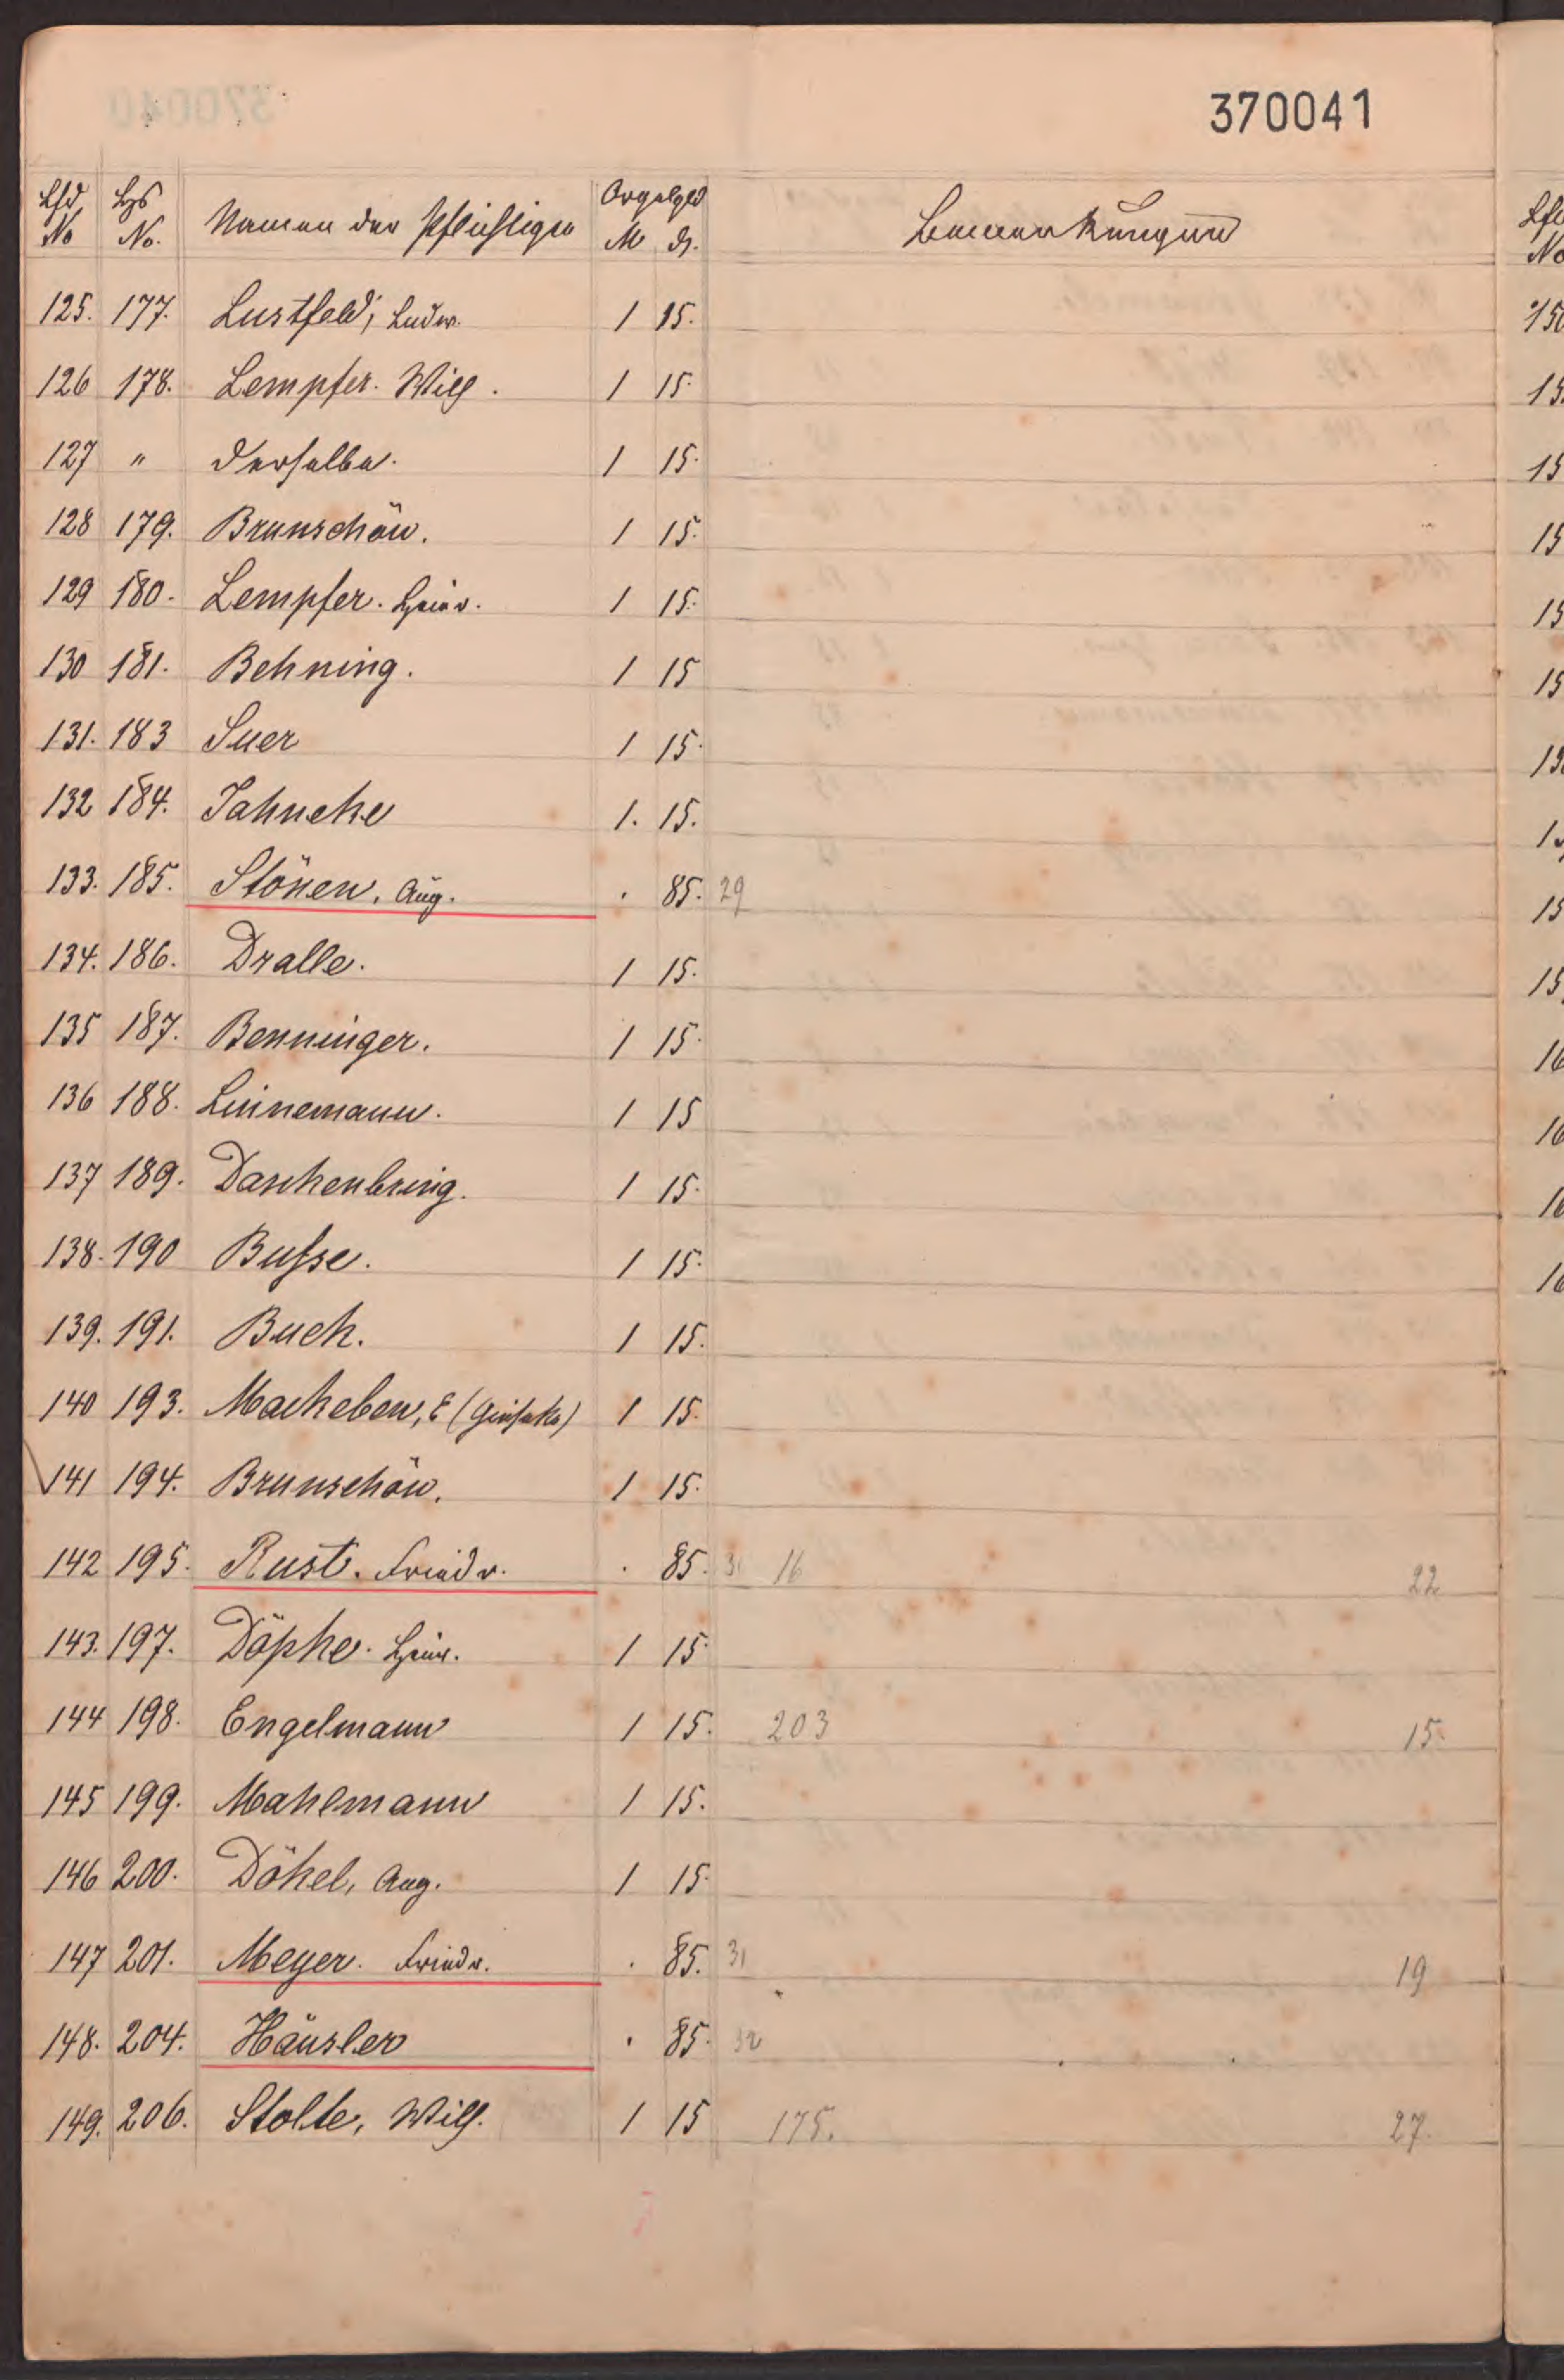 370041
Lfd No Hs No. Namen der Pflichtigen Orgelgeld M d. Bemerkungen
125. 177. Lustfeld, Ludw. 1 15.
126 178. Lempfer. Wilh. 1 15.
127 " derselbe. 1 15.
128 179. Brunschön. 1 15.
129 180. Lempfer. Heinr. 1 15.
130 181. Behning. 1 15
131. 183 Suer 1 15.
132 184. Jahneke 1. 15.
133. 185. Stönen, Aug. . 85. 29
134. 186. Dralle. 1 15.
135 187. Benninger. 1 15.
136 188. Linnemann. 1 15
137 189. Daschenbring. 1 15.
138. 190 Busse. 1 15.
139. 191. Buch. 1 15.
140 193. Mackeben, E 1 15.
141 194. Brunschön. 1 15.
142 195. Rust. Friedr. . 85. 31 16 22
143. 197. Döpke. Heinr. 1 15.
144 198. Engelmann 1 15. 203 15.
145 199. Mahlmann 1 15.
146 200. Döhel, Aug. 1 15.
147 201. Meyer. Friedr. . 85. 31 19
148. 204. Häusler . 85. 32
149. 206. Stolte, Wilh. 1 15 175. 27.